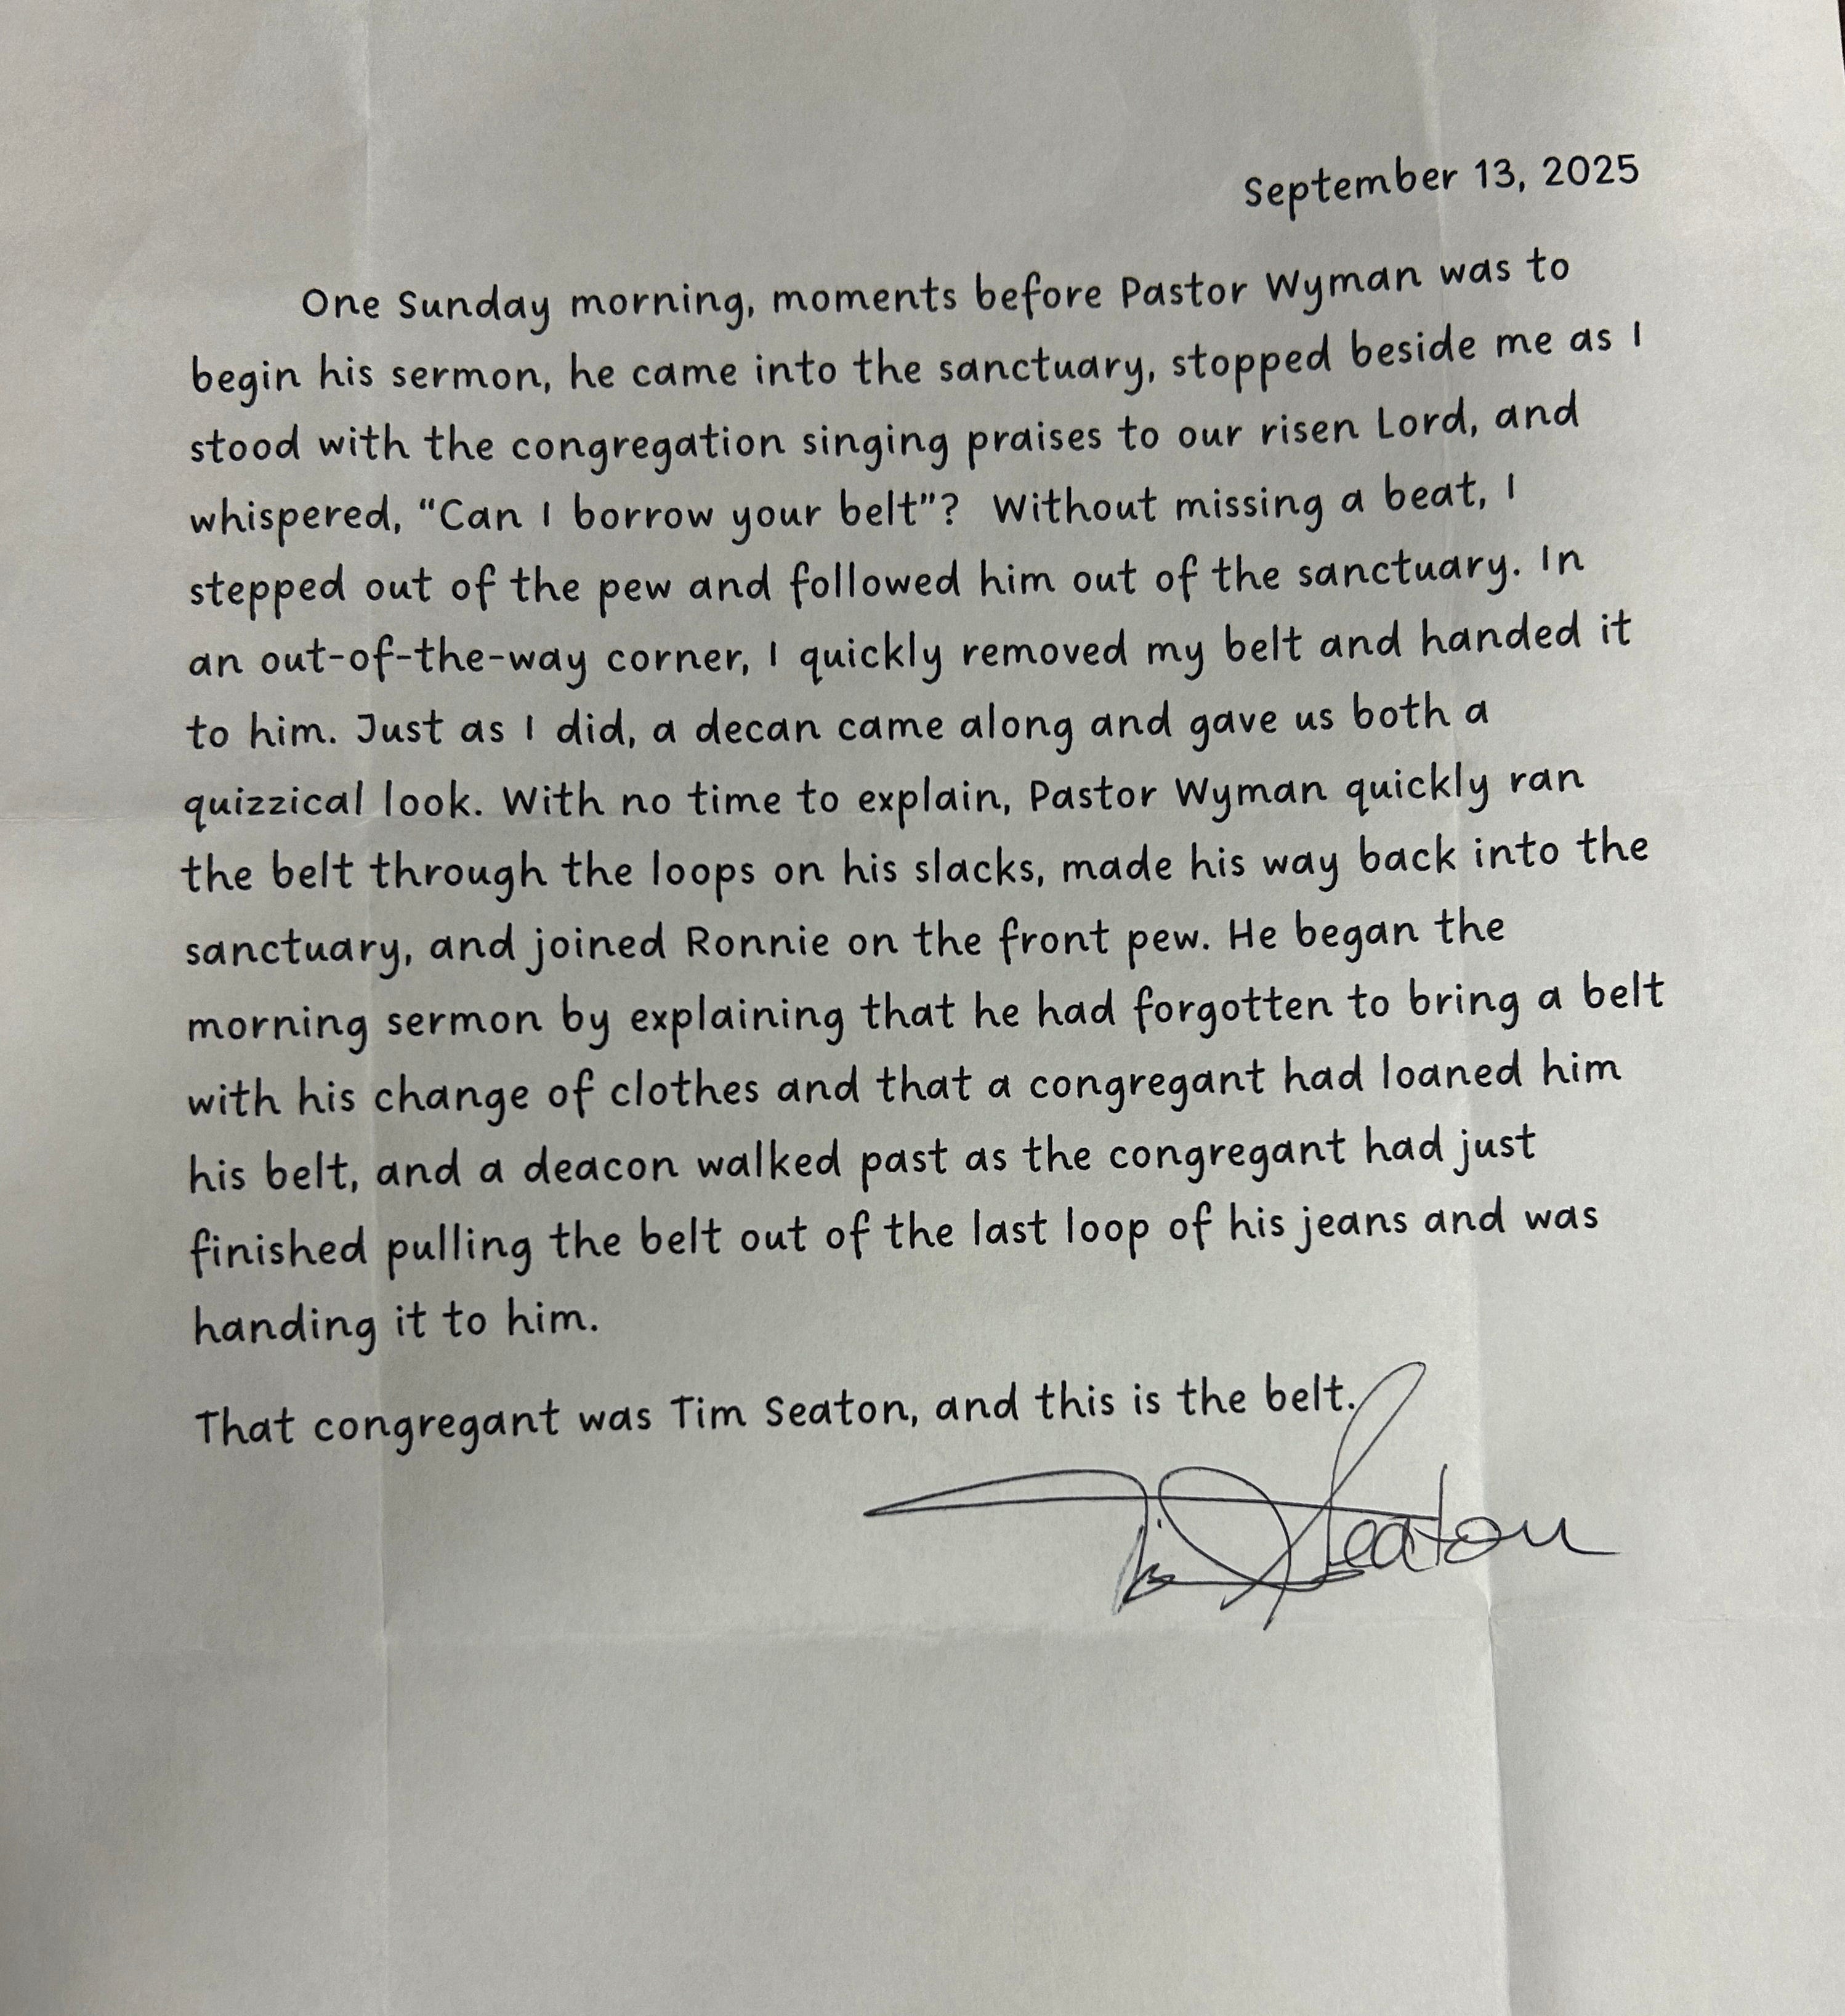 September 13, 2025
One Sunday morning, moments before Pastor Wyman was to
begin his sermon, he came into the sanctuary, stopped beside me as I
stood with the congregation singing praises to our risen Lord, and
whispered, “Can I borrow your belt”? Without missing a beat, I
stepped out of the pew and followed him out of the sanctuary. In
an out-of-the-way corner, I quickly removed my belt and handed it
to him. Just as I did, a decan came along and gave us both a
quizzical look. With no time to explain, Pastor Wyman quickly ran
the belt through the loops on his slacks, made his way back into the
sanctuary, and joined Ronnie on the front pew. He began the
morning sermon by explaining that he had forgotten to bring a belt
with his change of clothes and that a congregant had loaned him
his belt, and a deacon walked past as the congregant had just
finished pulling the belt out of the last loop of his jeans and was
handing it to him.
That congregant was Tim Seaton, and this is the belt.
Tim Seaton